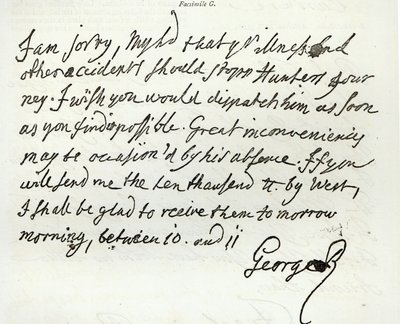 Facsimile G.
I am sorry, My Ld that yr illness and
other accidents should stopp Hunters jour
ney. I wish you would dispatch him as soon
as you find it possible. Great inconveniency
may be occasion'd by his absence. If you
will send me the ten thousand tt. by West,
I shall be glad to receive them to morrow
morning, between 10. and 11
George R